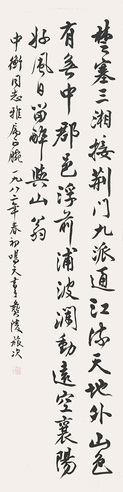 楚塞三湘接荆门九派通江流天地外山色
有无中郡邑浮前浦波澜动远空襄阳
好风日留醉与山翁
中衡同志雅属 一九八二年春初 天书 陵旅次